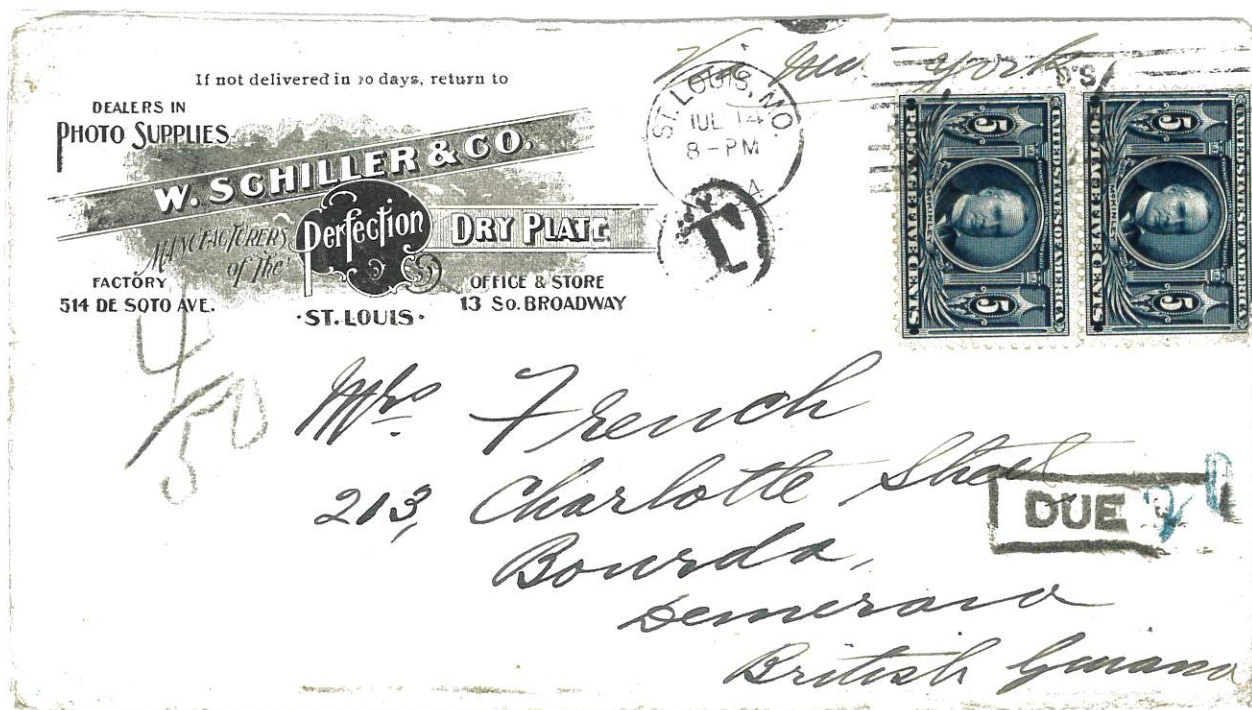 If not delivered in 10 days, return to
DEALERS IN
PHOTO SUPPLIES
W. SCHILLER & CO.
MANUFACTURERS
of the
Perfection
DRY PLATE
FACTORY
514 DE SOTO AVE.
OFFICE & STORE
13 So. BROADWAY
·ST. LOUIS·
Via New York
ST. LOUIS, MO.
JUL 14
8-PM
T
UNITED STATES OF AMERICA
5 5
POSTAGE FIVE CENTS
UNITED STATES OF AMERICA
5 5
POSTAGE FIVE CENTS
4
50
Mrs French
213, Charlotte Street
Bourda,
Demerara
British Guiana
DUE 2